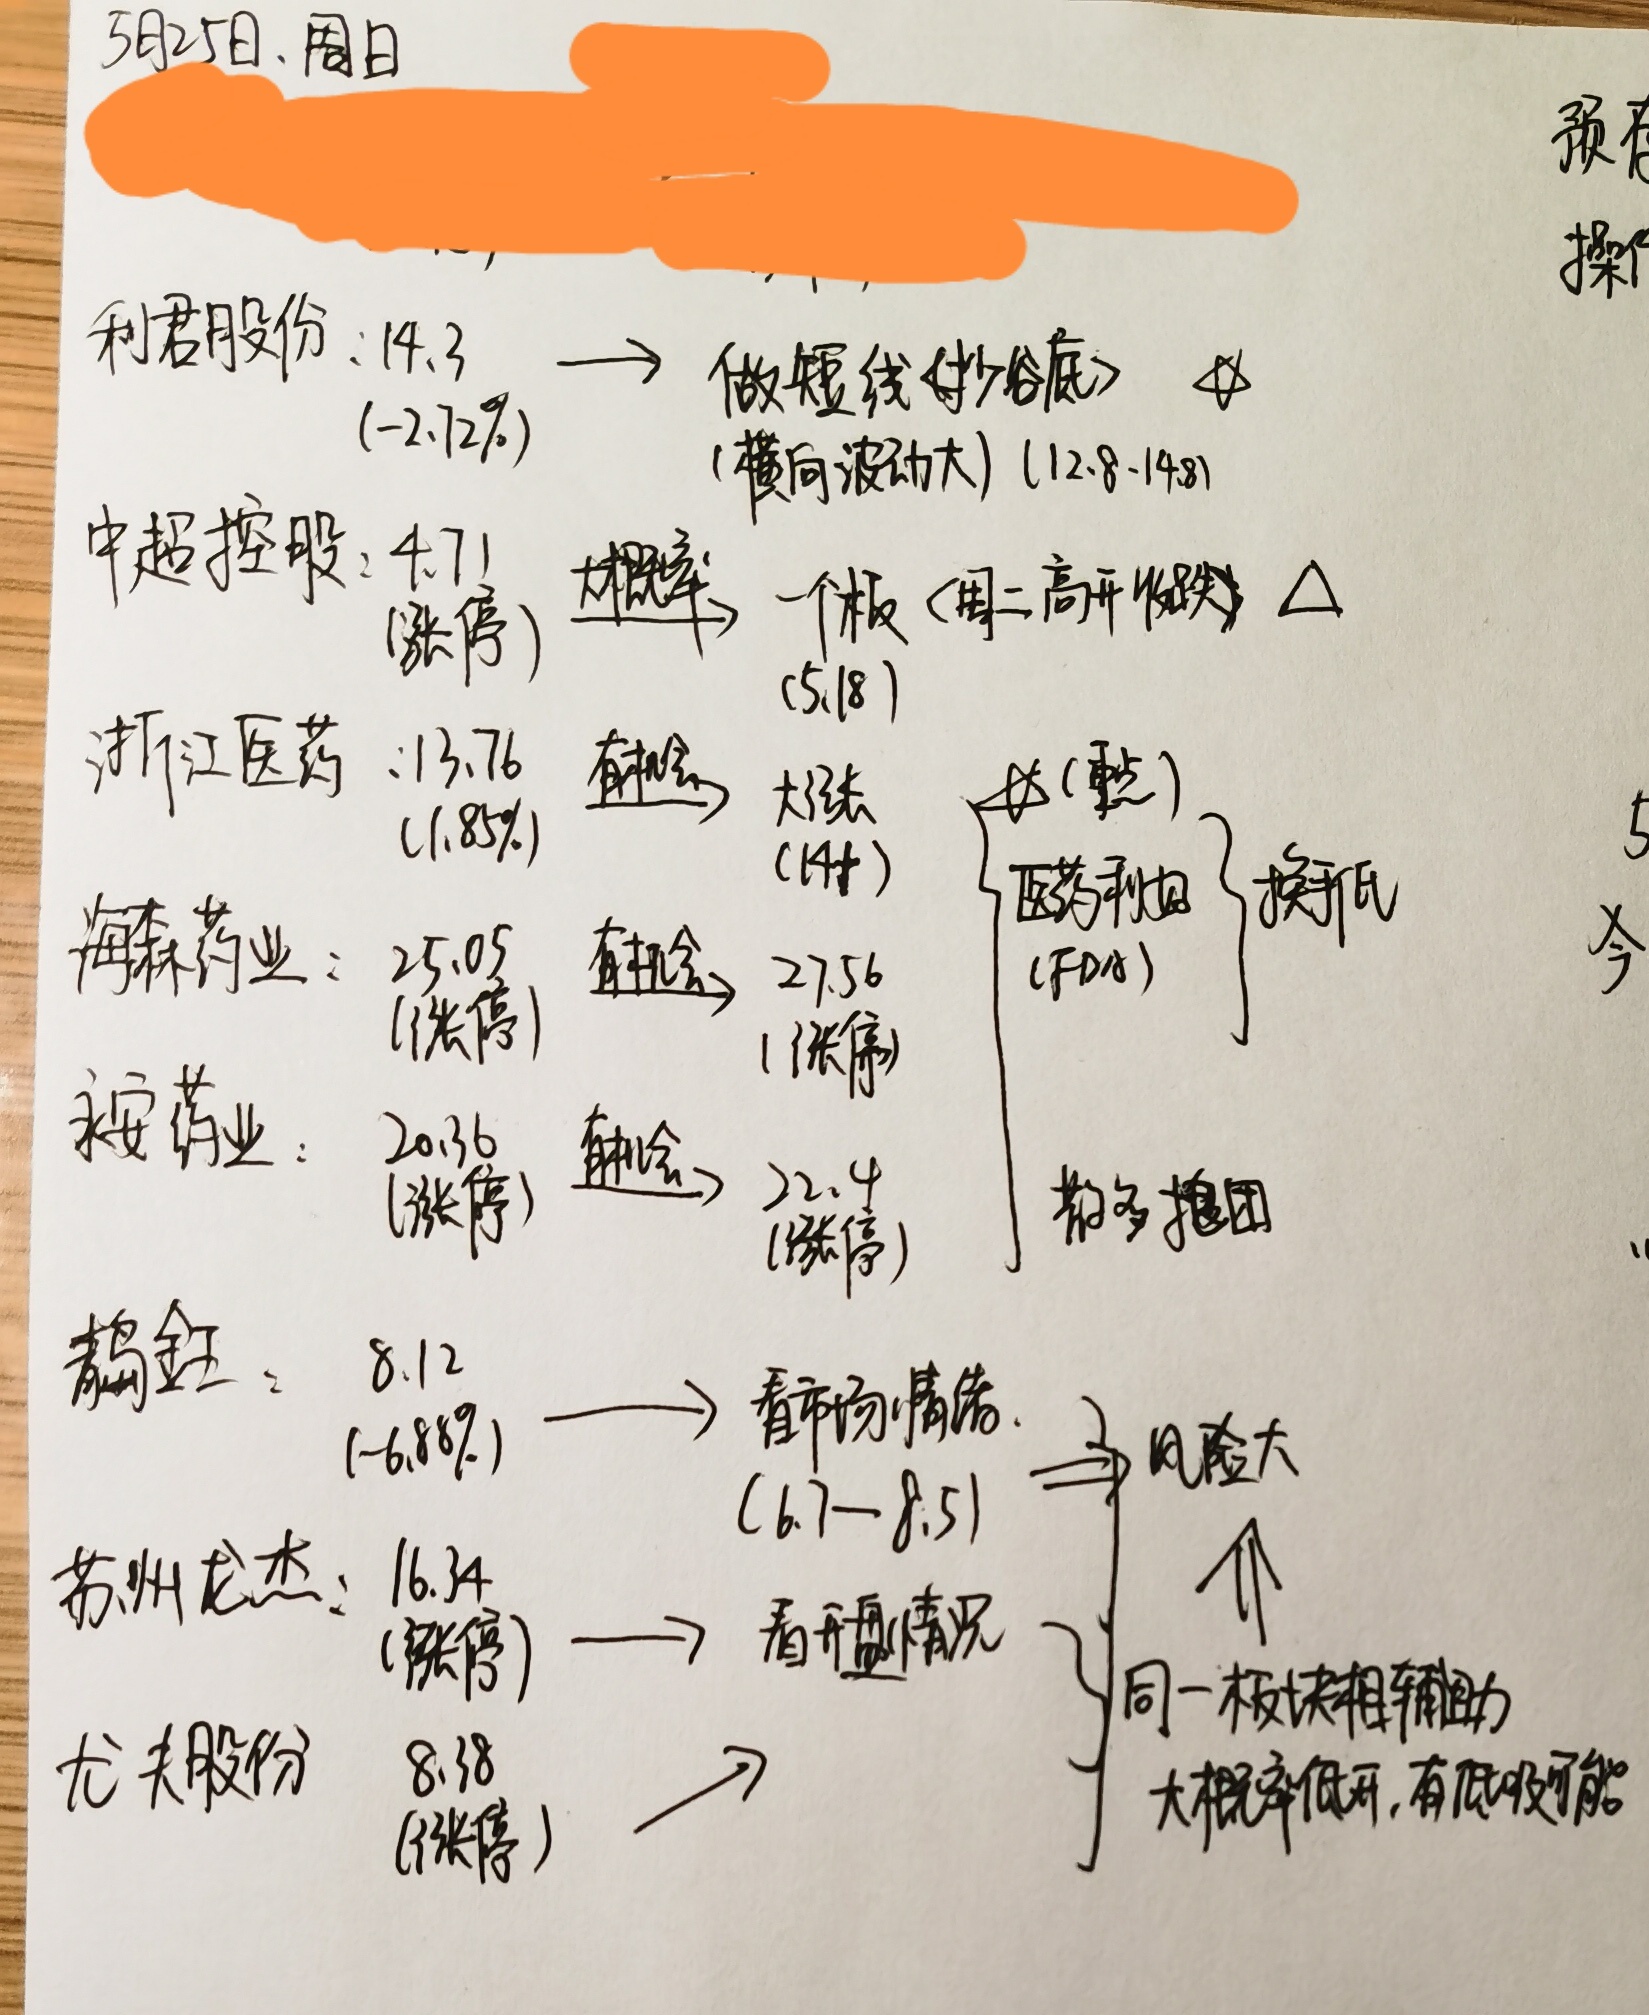 5月25日、周日
预
操
利君股份:14.3 → 做短线<抄谷底> ☆
(-2.72%) (横向波动大) (12.8-14.8)
中超控股:4.71 大概率→ 一个板<周二高开收跌> △
(涨停) (5.18)
浙江医药:13.76 有机会→ 大涨 ☆(重点)
(1.85%) (14+) 医药利 换手低
海森药业:25.05 有机会→ 27.56 (FDA)
(涨停) (涨停)
今
永安药业:20.36 有机会→ 22.4 抱团
(涨停) (涨停)
青岛金王:8.12 → 看市场情绪. ⇒ 风险大
(-6.88%) (6.7—8.5)
苏州龙杰:16.34 → 看开盘情况
(涨停) 同一板块相辅助
尤夫股份 8.38 大概率低开,有低吸可能
(涨停)